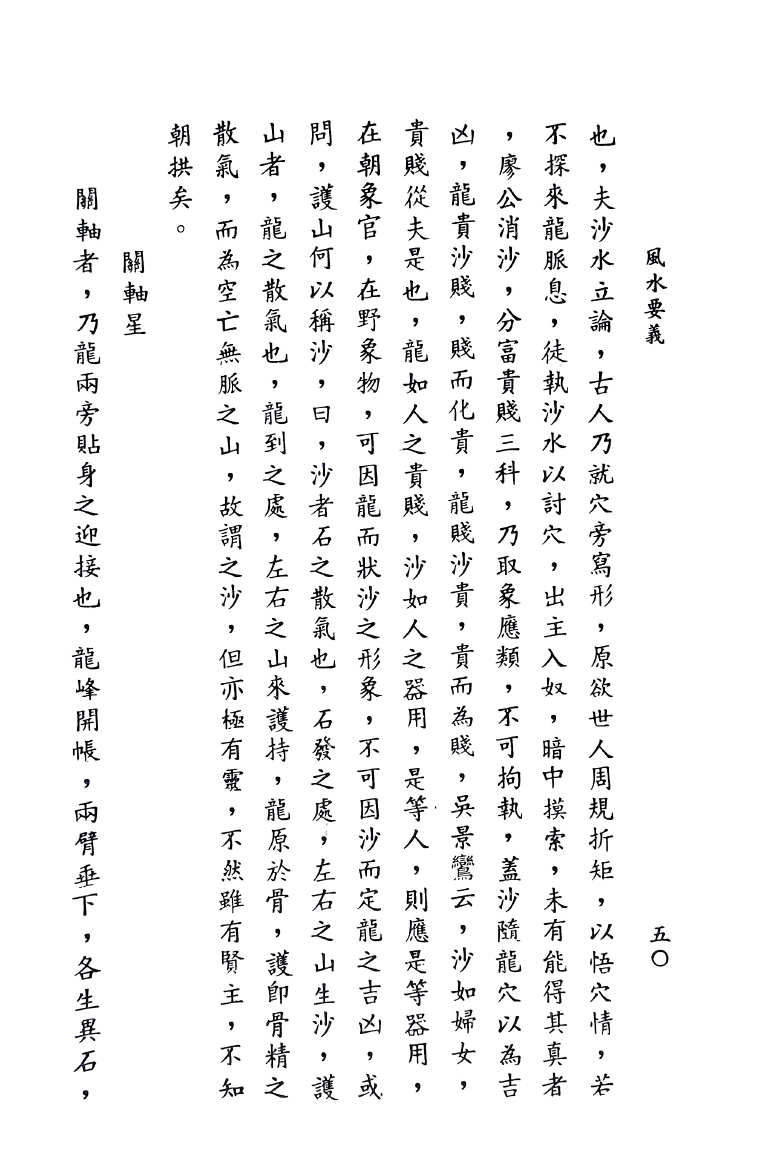 風水要義
五〇
也，夫沙水立論，古人乃就穴旁寫形，原欲世人周規折矩，以悟穴情，若
不探來龍脈息，徒執沙水以討穴，出主入奴，暗中摸索，未有能得其真者
，廖公消沙，分富貴賤三科，乃取象應類，不可拘執，蓋沙隨龍穴以為吉
凶，龍貴沙賤，賤而化貴，龍賤沙貴，貴而為賤，吳景鸞云，沙如婦女，
貴賤從夫是也，龍如人之貴賤，沙如人之器用，是等人，則應是等器用，
在朝象官，在野象物，可因龍而狀沙之形象，不可因沙而定龍之吉凶，或
問，護山何以稱沙，曰，沙者石之散氣也，石發之處，左右之山生沙，護
山者，龍之散氣也，龍到之處，左右之山來護持，龍原於骨，護卽骨精之
散氣，而為空亡無脈之山，故謂之沙，但亦極有靈，不然雖有賢主，不知
朝拱矣。
關軸星
關軸者，乃龍兩旁貼身之迎接也，龍峰開帳，兩臂垂下，各生異石，